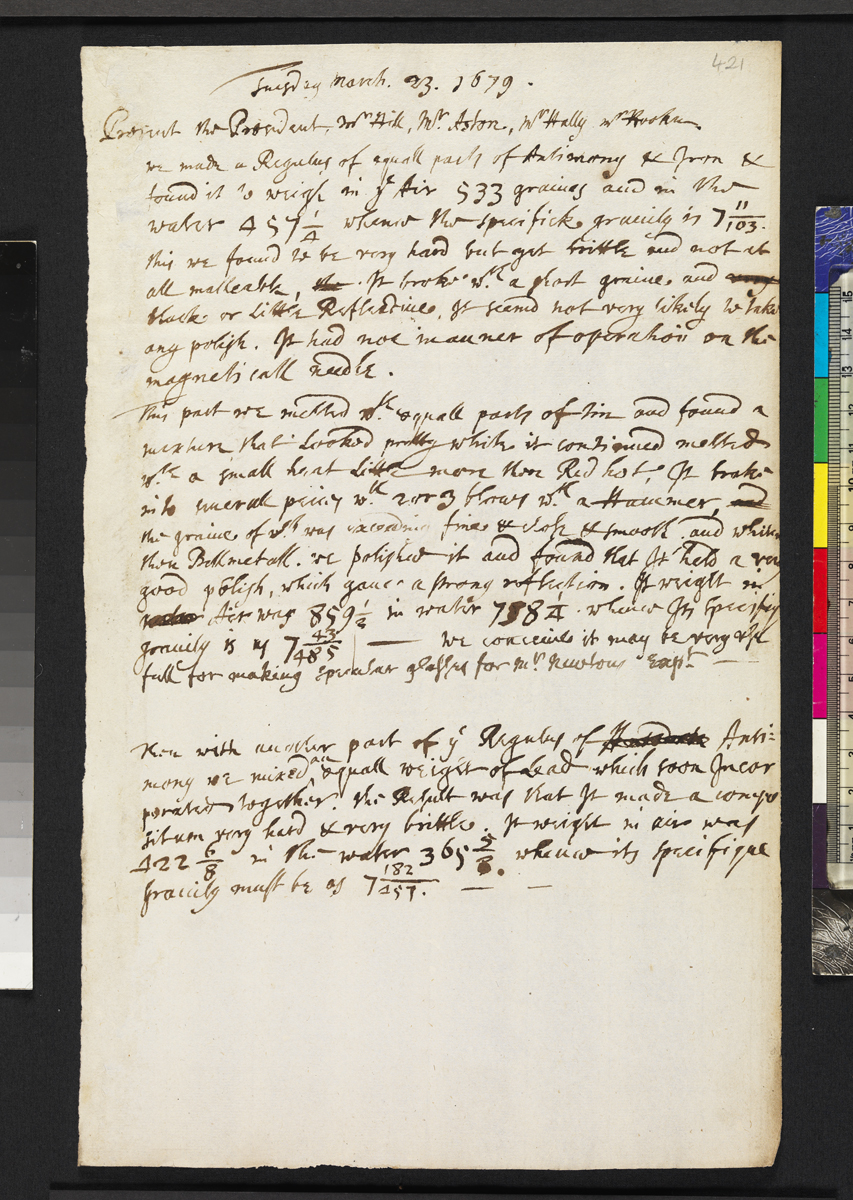 421
Tuesday March. 23. 1679.
Present the President, Mr Hill, Mr. Aston, Mr Hally Mr Hooke
we made a Regulus of equall parts of Antimony & Iron &
found it to weigh in ye Air 533 graines and in the
water 457 1/4 whence the specifick gravity is 7 11/103.
this we found to be very hard but yet brittle and not at
all malleable, the. It broke wth a short graine and very
black or little Reflective. It seemd not very likely to take
any polish. It had noe manner of operation on the
magneticall needle.
This part we melted wth equall parts of tin and found a
mixture that Looked pretty white it continued melted
wth a small heat little more then Red hot, It broke
into severall pieces wth 2 or 3 blows wth a Hammer, and
the graine of wch was exceeding fine & close & smooth and whiter
then Bellmetall. we polished it and found that It held a very
good polish, which gave a strong reflection. It weight in
water Air was 859 1/2 in water 738 1/4. whence Its specifiq
gravity is as 7 43/485 we conceive it may be very use
full for making specular glasses for Mr. Newtons Expt.
then with another part of ye Regulus of Anti=
mony we mixed an equall weight of Lead which soon Incor
porated together. the Result was that It made a compo
situm very hard & very brittle. It weight in air was
422 6/8 in the water 365 5/8. whence its specifique
gravity must be as 7 182/457.